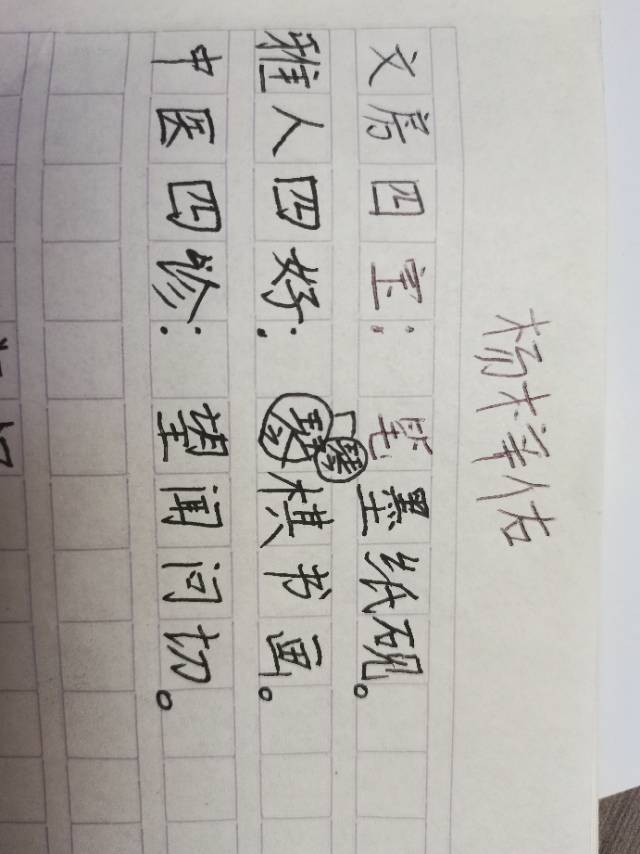 杨梓佑
文房四宝：笔墨纸砚。
雅人四好：琴棋书画。
中医四诊：望闻问切。